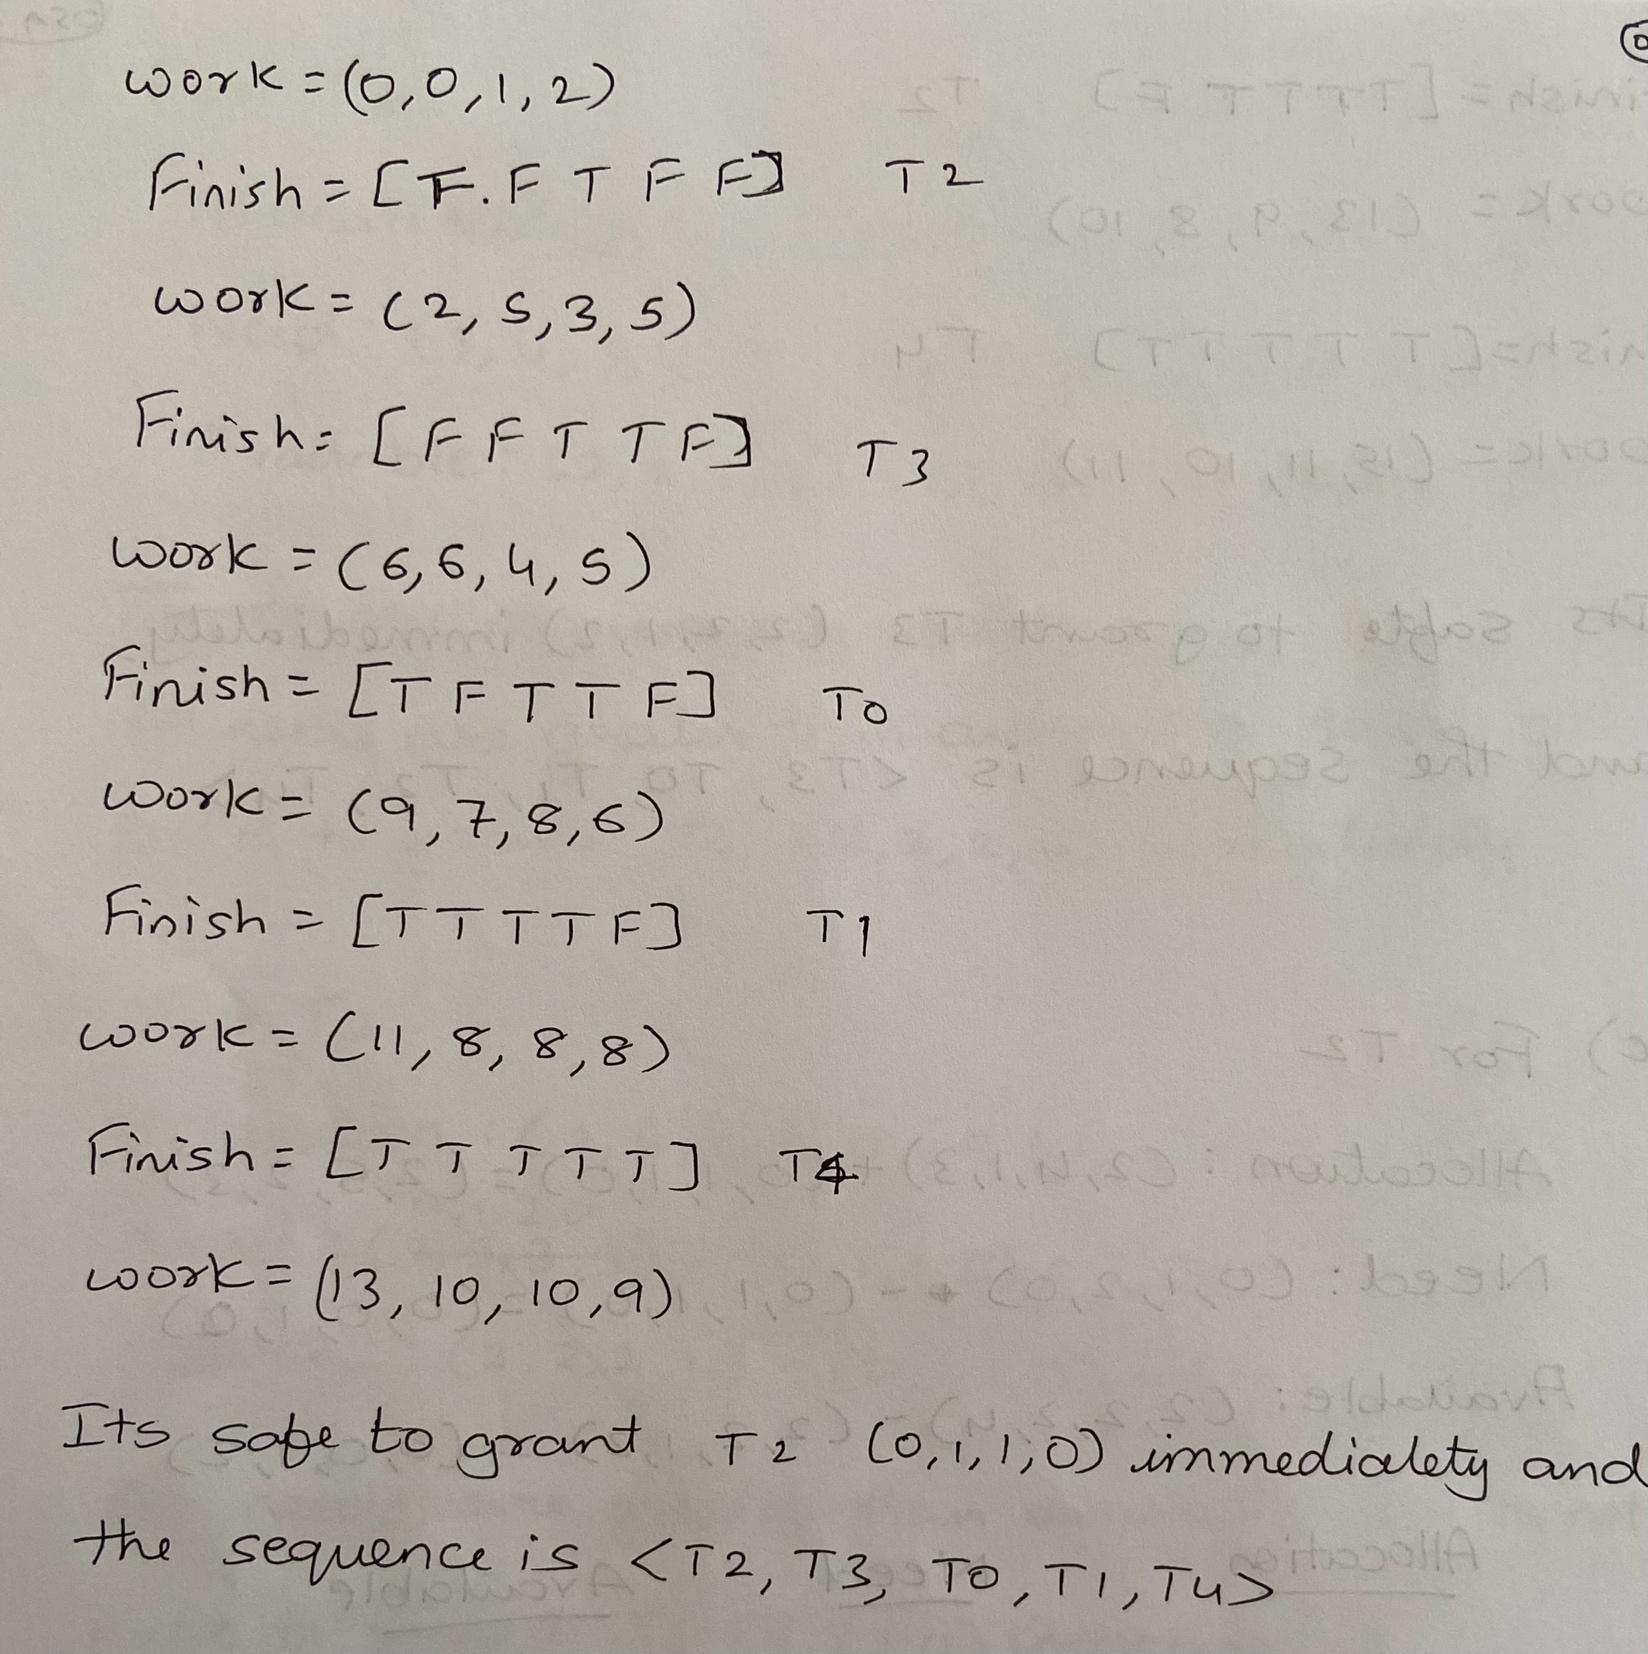 work = (0,0,1,2)
Finish = [F. F T F F] T2
work = (2, 5, 3, 5)
Finish = [F F T T F] T3
work = (6,6, 4, 5)
Finish = [T F T T F] T0
work = (9, 7, 8, 6)
Finish = [T T T T F] T1
work = (11, 8, 8, 8)
Finish = [T T T T T] T4
work = (13, 10, 10, 9)
Its safe to grant T2 (0,1,1,0) immedialety and
the sequence is <T2, T3, T0, T1, T4>